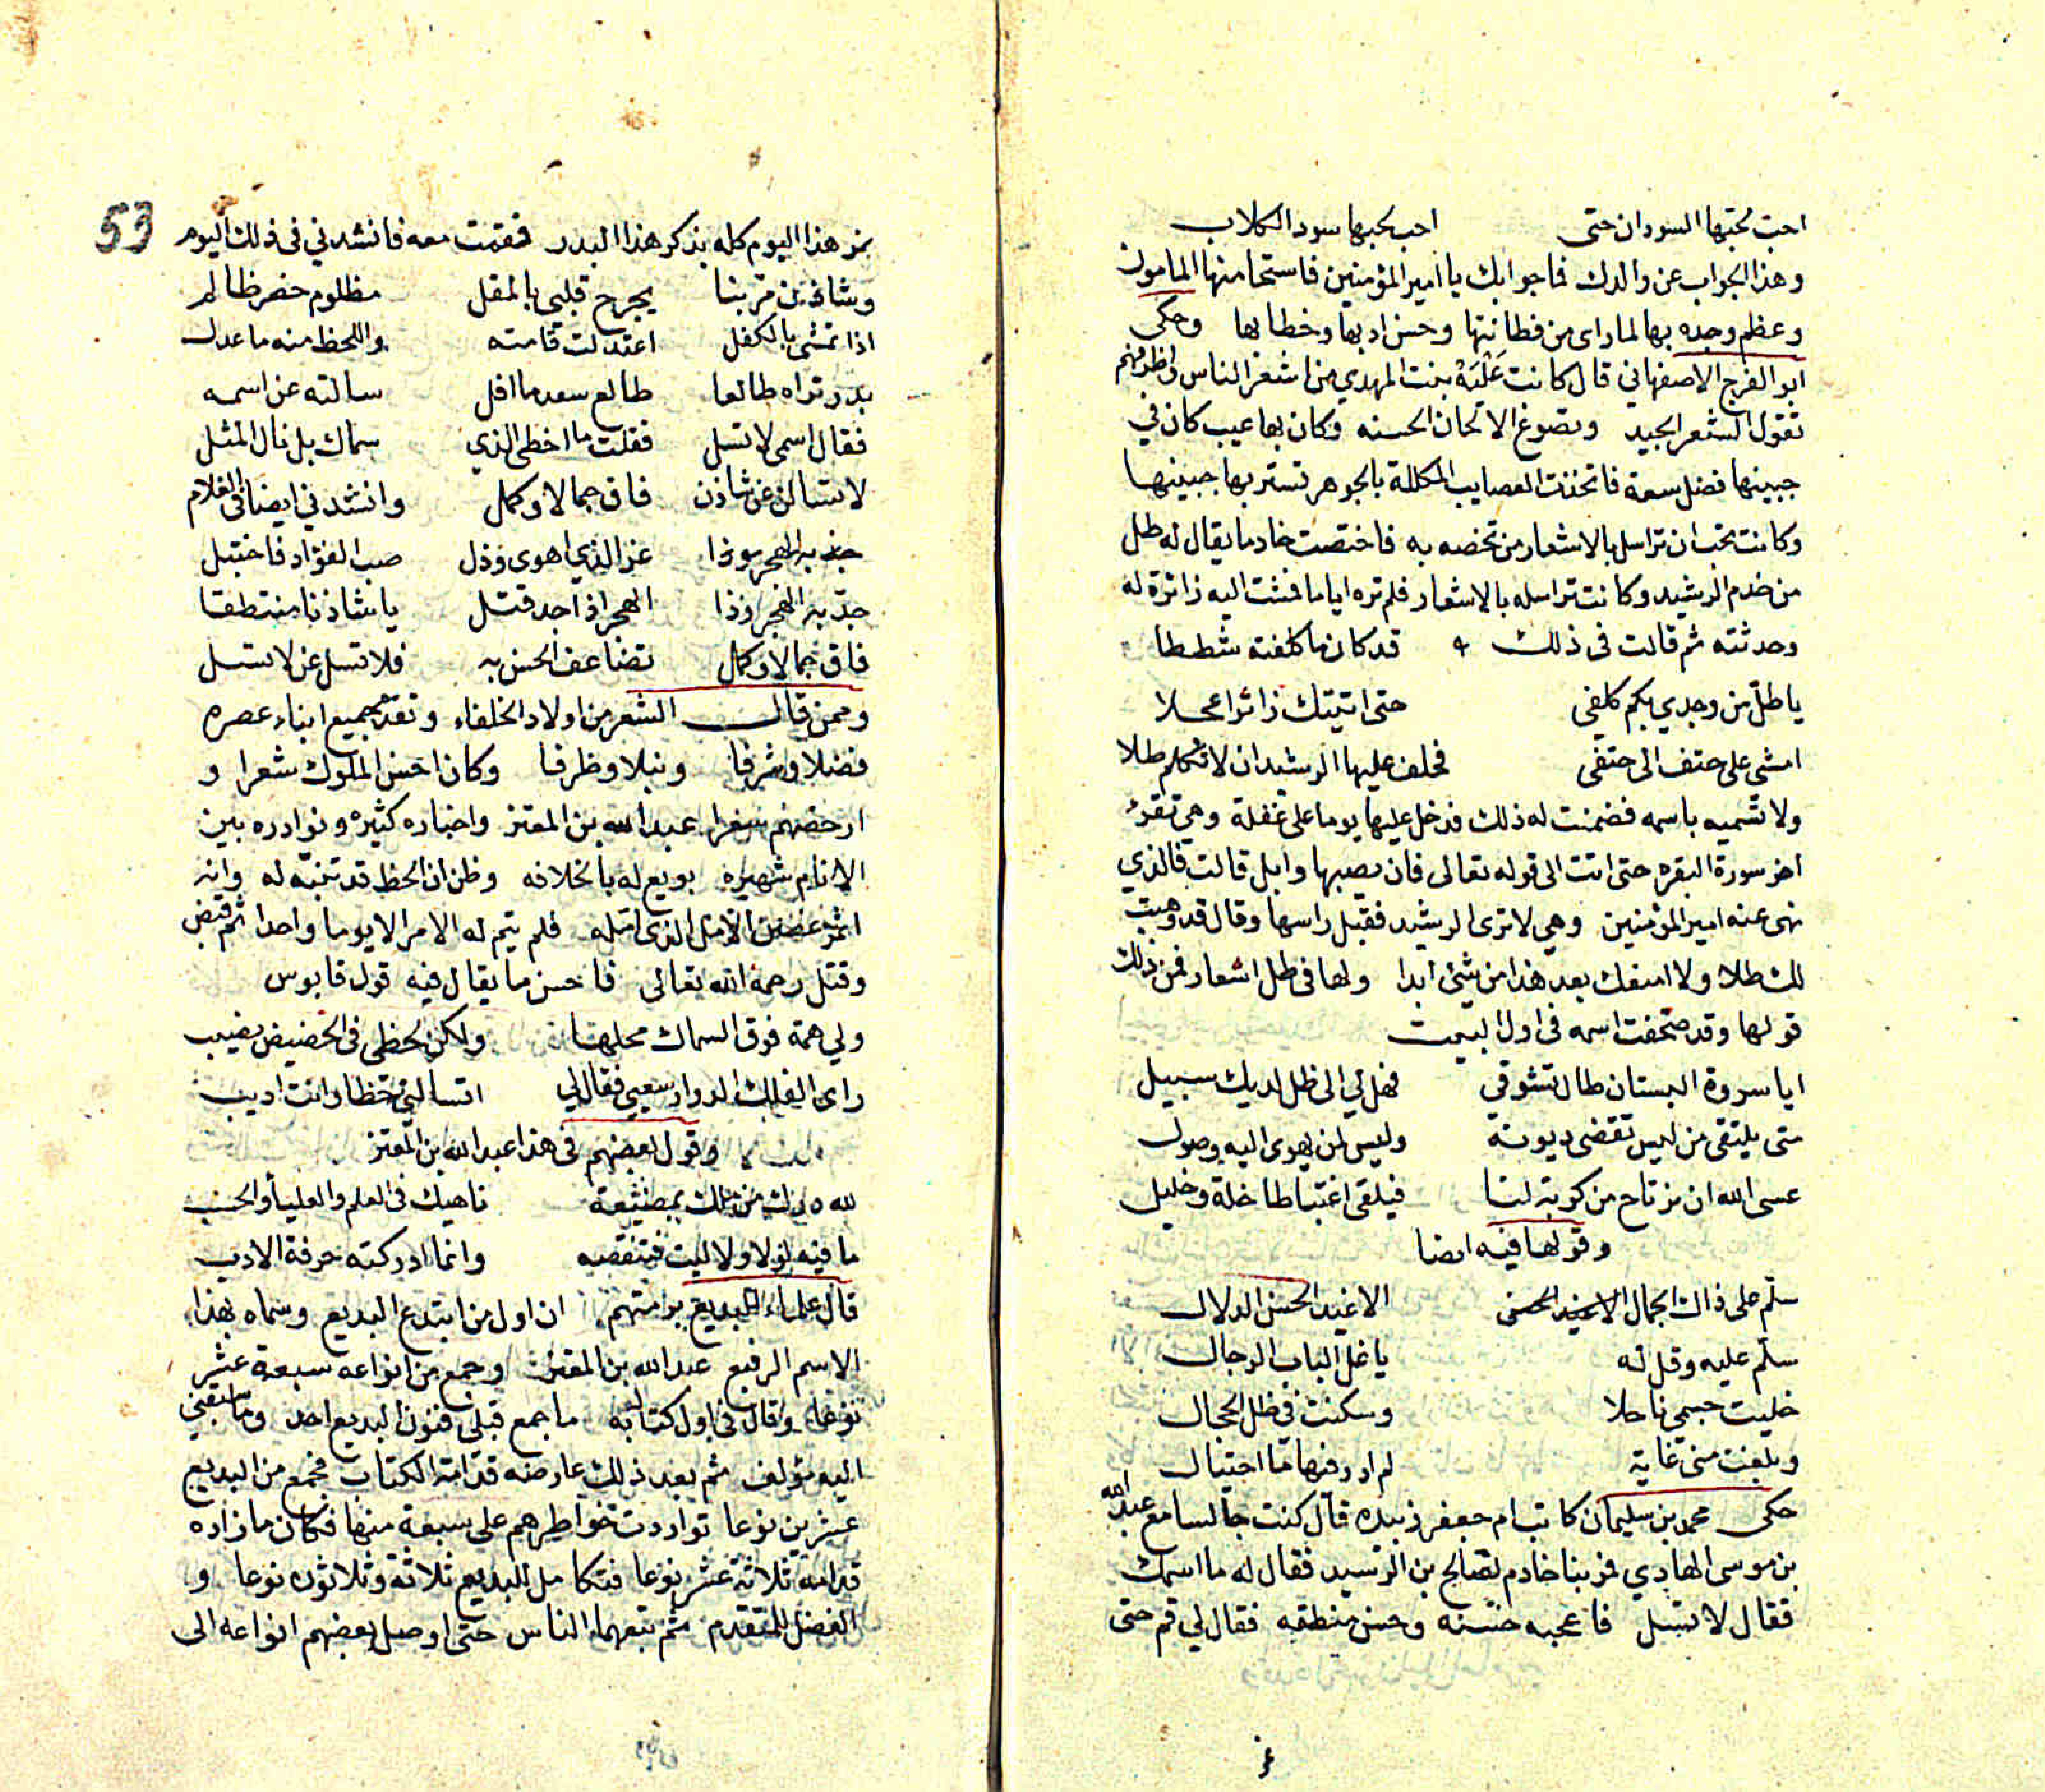 احب لحبها السودان حتى احب لحبها سود الكلاب
وهذا الجواب عن والدك فما جوابك يا امير المؤمنين فاستحا منها المامون
وعظم وجده بها لما راى من فطانتها وحسن ادبها وخطابها وحكى
ابو الفرج الاصفهاني قال كانت علية بنت المهدي من اشعر الناس واظرفهم
تقول الشعر الجيد وتصوغ الالحان الحسنه وكان بها عيب كان في
جبينها فضل سعة فاتخذت العصايب المكللة بالجوهر تستر بها جبينها
وكانت تحب ان تراسل بالاشعار من تخصه به فاختصت خادما يقال له طل
من خدم الرشيد وكانت تراسله بالاشعار فلم تره اياما فمشت اليه زائرة له
وحدثته ثم قالت فى ذلك قد كان ما كلفته شططا
ياطل من وجدي بكم كلفي حتى اتيتك زائرا عجلا
امشى على حتف الى حتفى فحلف عليها الرشيد ان لا تكلم طلا
ولا تسميه باسمه فضمنت له ذلك فدخل عليها يوما على غفلة وهى تقرء
اخر سورة البقره حتى اتت الى قوله تعالى فان يصبها وابل قالت فالذي
نهى عنه امير المؤمنين وهي لا ترى الرشيد فقبل راسها وقال قد وهبت
لك طلا ولا امنعك بعد هذا من شئ ابدا ولها فى طل اشعار فمن ذلك
قولها وقد صحفت اسمه فى اول البيت
ايا سروة البستان طال تشوقي فهل لي الى ظل لديك سبيل
متى يلتقى من ليس تقضى ديونه وليس لمن يهوى اليه وصول
عسى الله ان نرتاح من كربة لنا فيلقى اغتباطا خلة وخليل
وقولها فيه ايضا
سلم على ذاك الجمال الاغيد الحسن الدلال
سلم عليه وقل له ياغل الباب الرجال
خليت جسمي ناحلا وسكنت في ظل الحجال
وبلغت منى غاية لم ادر فيها ما احتيال
حكى محمد بن سليمان كاتب ام جعفر زبيده قال كنت جالسا مع عبد الله
بن موسى الهادي فمر بنا خادم لصالح بن الرشيد فقال له ما اسمك
فقال لا تسل فاعجبه حسنه وحسن منطقه فقال لي قم حتى
نمر هذا اليوم كله بذكر هذا البدر فقمت معه فانشدني فى ذلك اليوم
وشاذن مر بنا يجرح قلبى بالمقل مظلوم خصر ظالم
اذا تمشى بالكفل اعتدلت قامته واللحظ منه ما عدل
بدر تراه طالعا طالع سعد ما افل سالته عن اسمه
فقال اسمى لا تسل فقلت ما اخطى الذي سماك بل نال المثل
لا تسالن عن شاذن فاق جمالا وكمل وانشدني ايضا فى الغلام
عز الذي اهوى وذل صب الفؤاد فاختبل
جد به الهجر وذا الهجر اذا جد قتل ياشاذنا منتطقا
فاق جمالا وكمل تضاعف الحسن به فلا تسل عن لا تسل
وممن قال الشعر من اولاد الخلفاء وتقدم جميع ابناء عصره
فضلا وشرفا ونبلا وظرفا وكان احسن الملوك شعرا و
ارخصهم سعرا عبد الله بن المعتز واخباره كثيره ونوادره بين
الانام شهيره بويع له بالخلافه وظن ان الحظ قد تنبه له وانه
اثمر غصن الامل الذى امله فلم يتم له الامر الا يوما واحدا ثم قبض
وقتل رحمه الله تعالى فاحسن ما يقال فيه قول قابوس
ولي همة فوق السماك محلها ولكن لحظى فى الحضيض نصيب
راى الفلك الدوار سعيي فقال لي اتسالنى حظا وانت اديب
وقول بعضهم فى هذا عبد الله بن المعتز
لله درك من ملك بمضيعة ناهيك فى العلم والعليا والحسب
ما فيه لولا ولا ليت فتنقصه وانما ادركته حرفة الادب
قال علماء البديع برمتهم ان اول من ابتدع البديع وسماه بهذا
الاسم الرفيع عبد الله بن المعتز وجمع من انواعه سبعة عشر
نوعا وقال فى اول كتابه ما جمع قبلى فنون البديع احد وما سبقني
اليه مؤلف ثم بعد ذلك عارضه قدامة الكتاب فجمع من البديع
عشرين نوعا تواردت خواطرهم على سبعة منها فكان ما زاده
قدامة ثلاثة عشر نوعا فتكامل البديع ثلاثة وثلاثون نوعا و
الفضل للمتقدم ثم تبعهما الناس حتى اوصل بعضهم انواعه الى
53